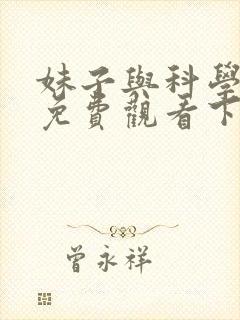 妹子與科學
免費觀看下
曾永祥